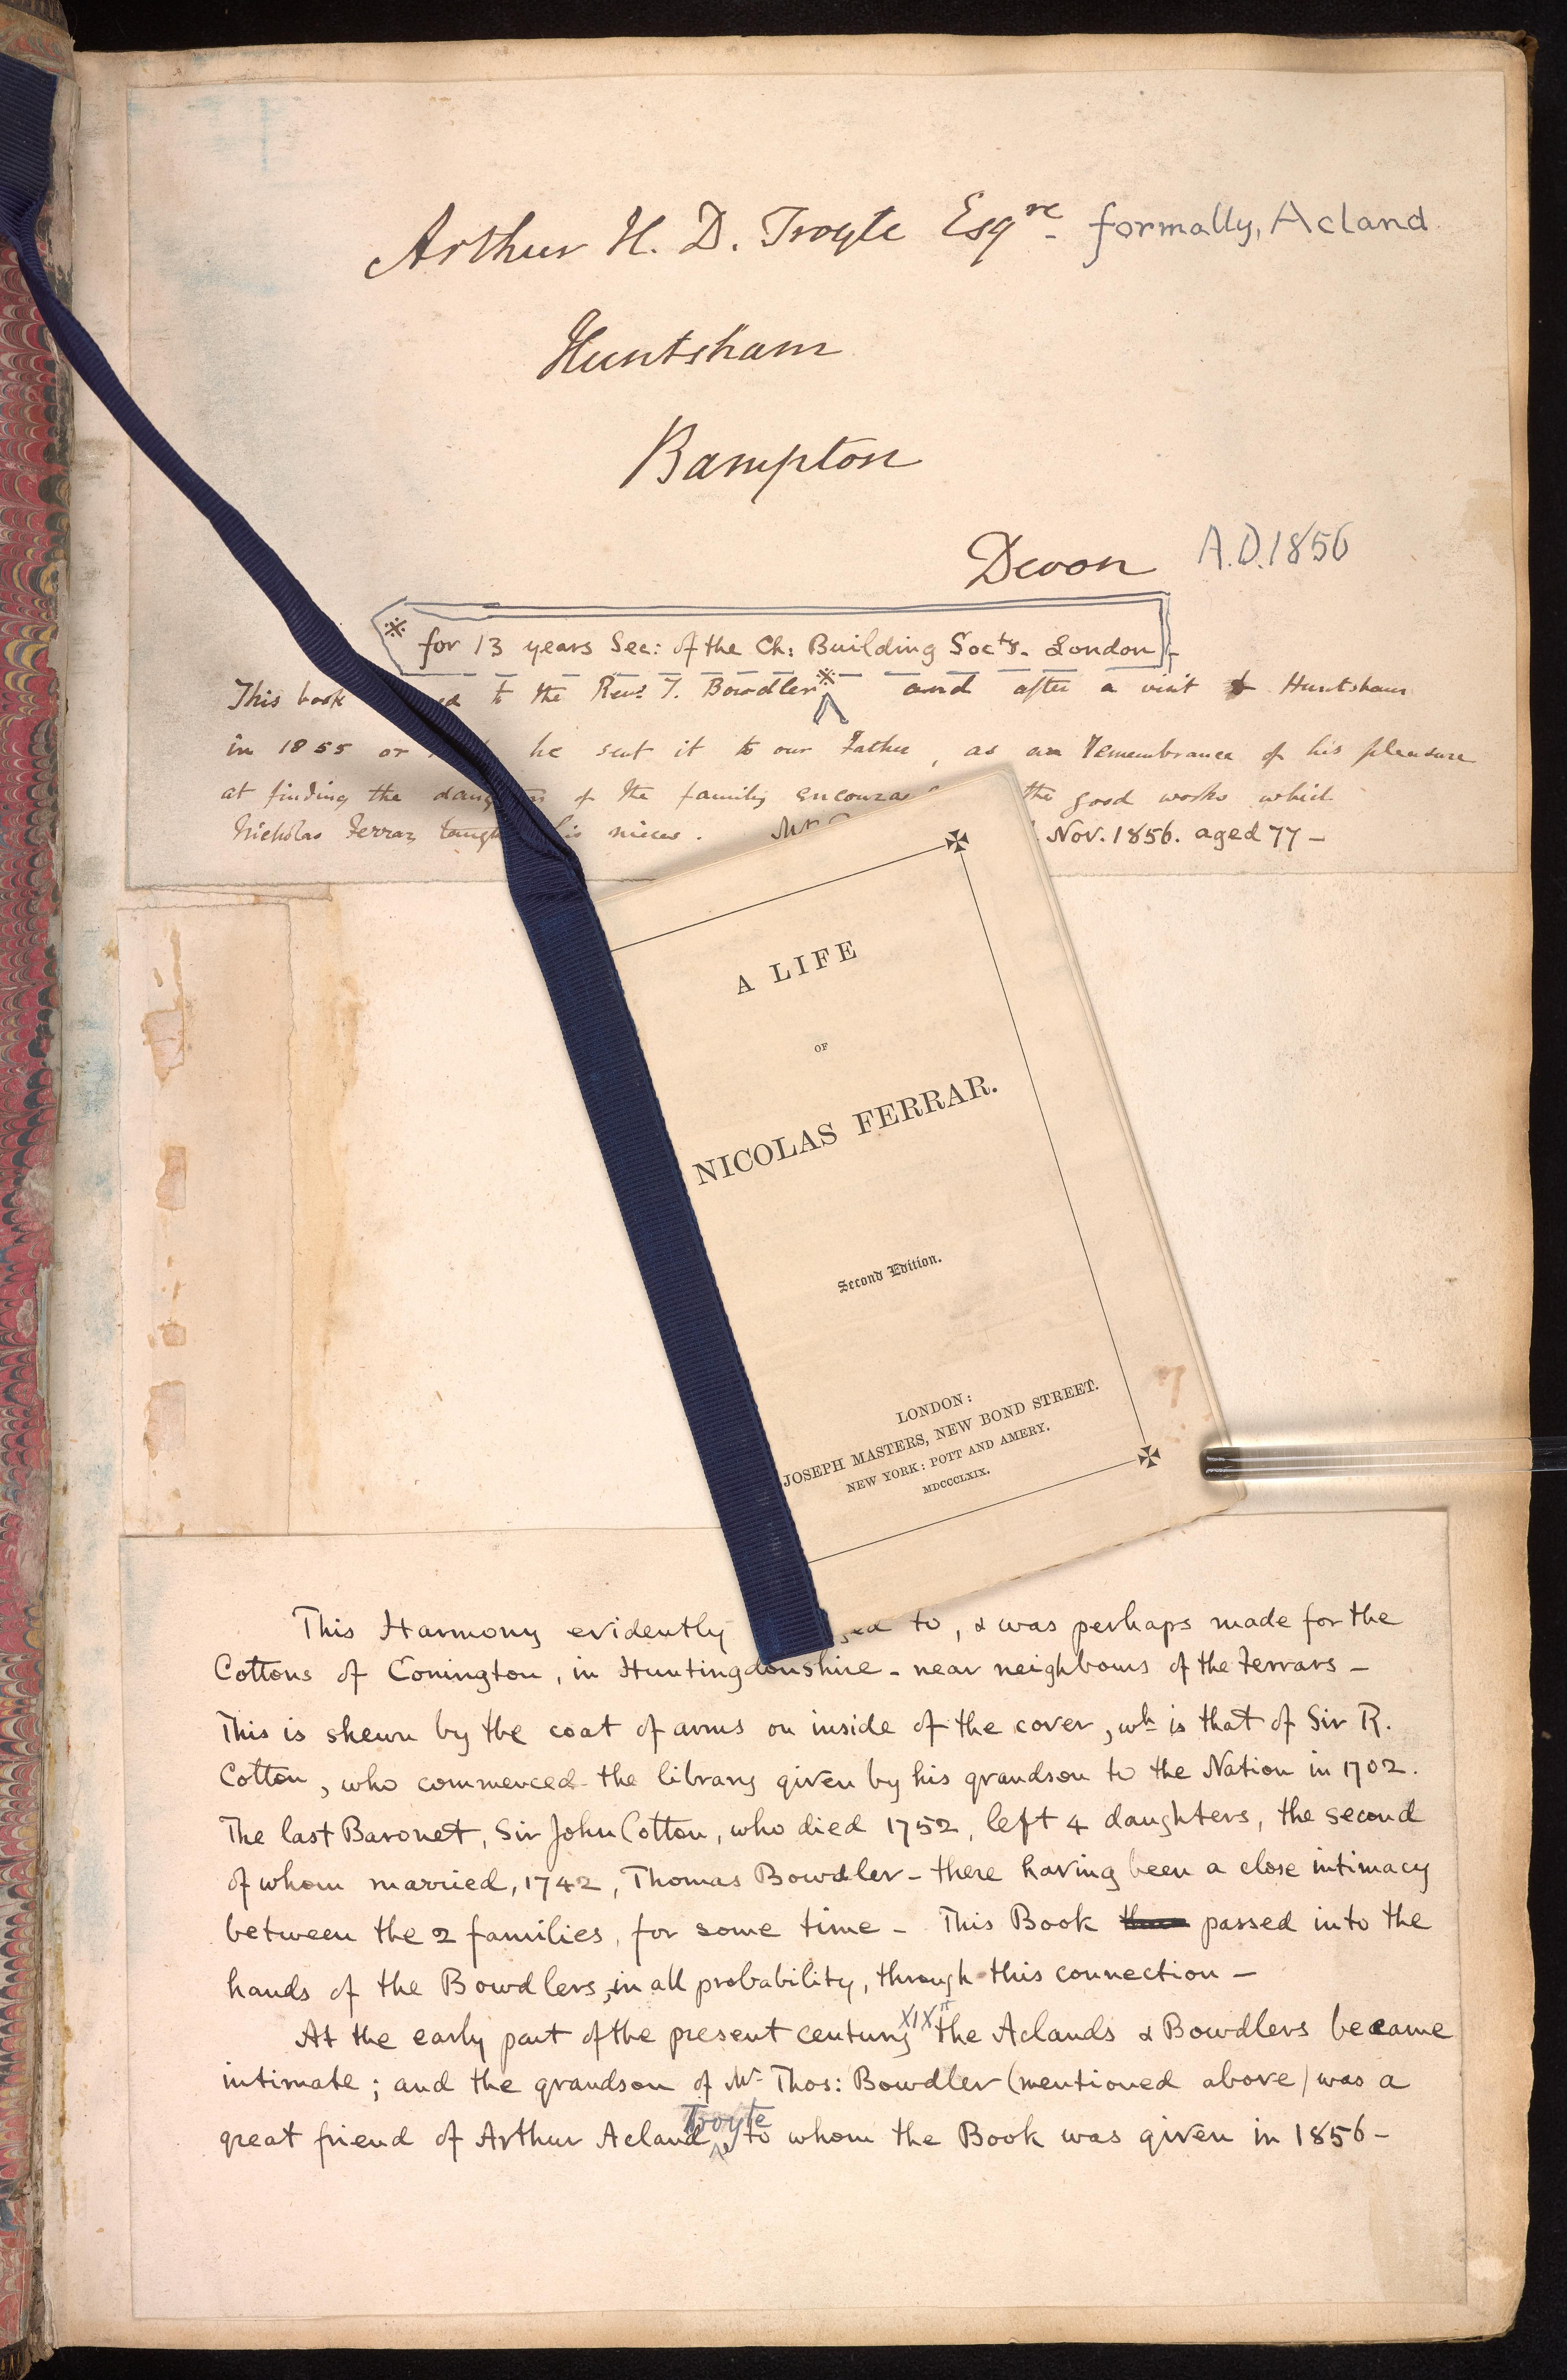 Arthur H. D. Troyte Esqre. formally, Acland
Huntsham
Bampton
Devon A.D. 1856
※ for 13 years Sec: of the Ch: Building Socty. London
This book to the Revd T. Bowdler※ and after a visit to Huntsham
in 1855 or he sent it to our Father, as an remembrance of his pleasure
at finding the of the family the good works which
Nicholas Ferrar his nieces. Mr Nov. 1856. aged 77 –
A LIFE
OF
NICOLAS FERRAR.
Second Edition.
LONDON:
JOSEPH MASTERS, NEW BOND STREET.
NEW YORK: POTT AND AMERY.
MDCCCLXIX.
This Harmony evidently to, & was perhaps made for the
Cottons of Conington, in Huntingdonshire – near neighbours of the Ferrars –
This is shewn by the coat of arms on inside of the cover, wh is that of Sir R.
Cotton, who commenced the library given by his grandson to the Nation in 1702.
The last Baronet, Sir John Cotton, who died 1752, left 4 daughters, the second
of whom married, 1742, Thomas Bowdler – there having been a close intimacy
between the 2 families, for some time – This Book passed into the
hands of the Bowdlers, in all probability, through this connection –
At the early part of the present century XIXth the Aclands & Bowdlers became
intimate; and the grandson of Mr Thos: Bowdler (mentioned above) was a
great friend of Arthur Acland, Troyte to whom the Book was given in 1856 –